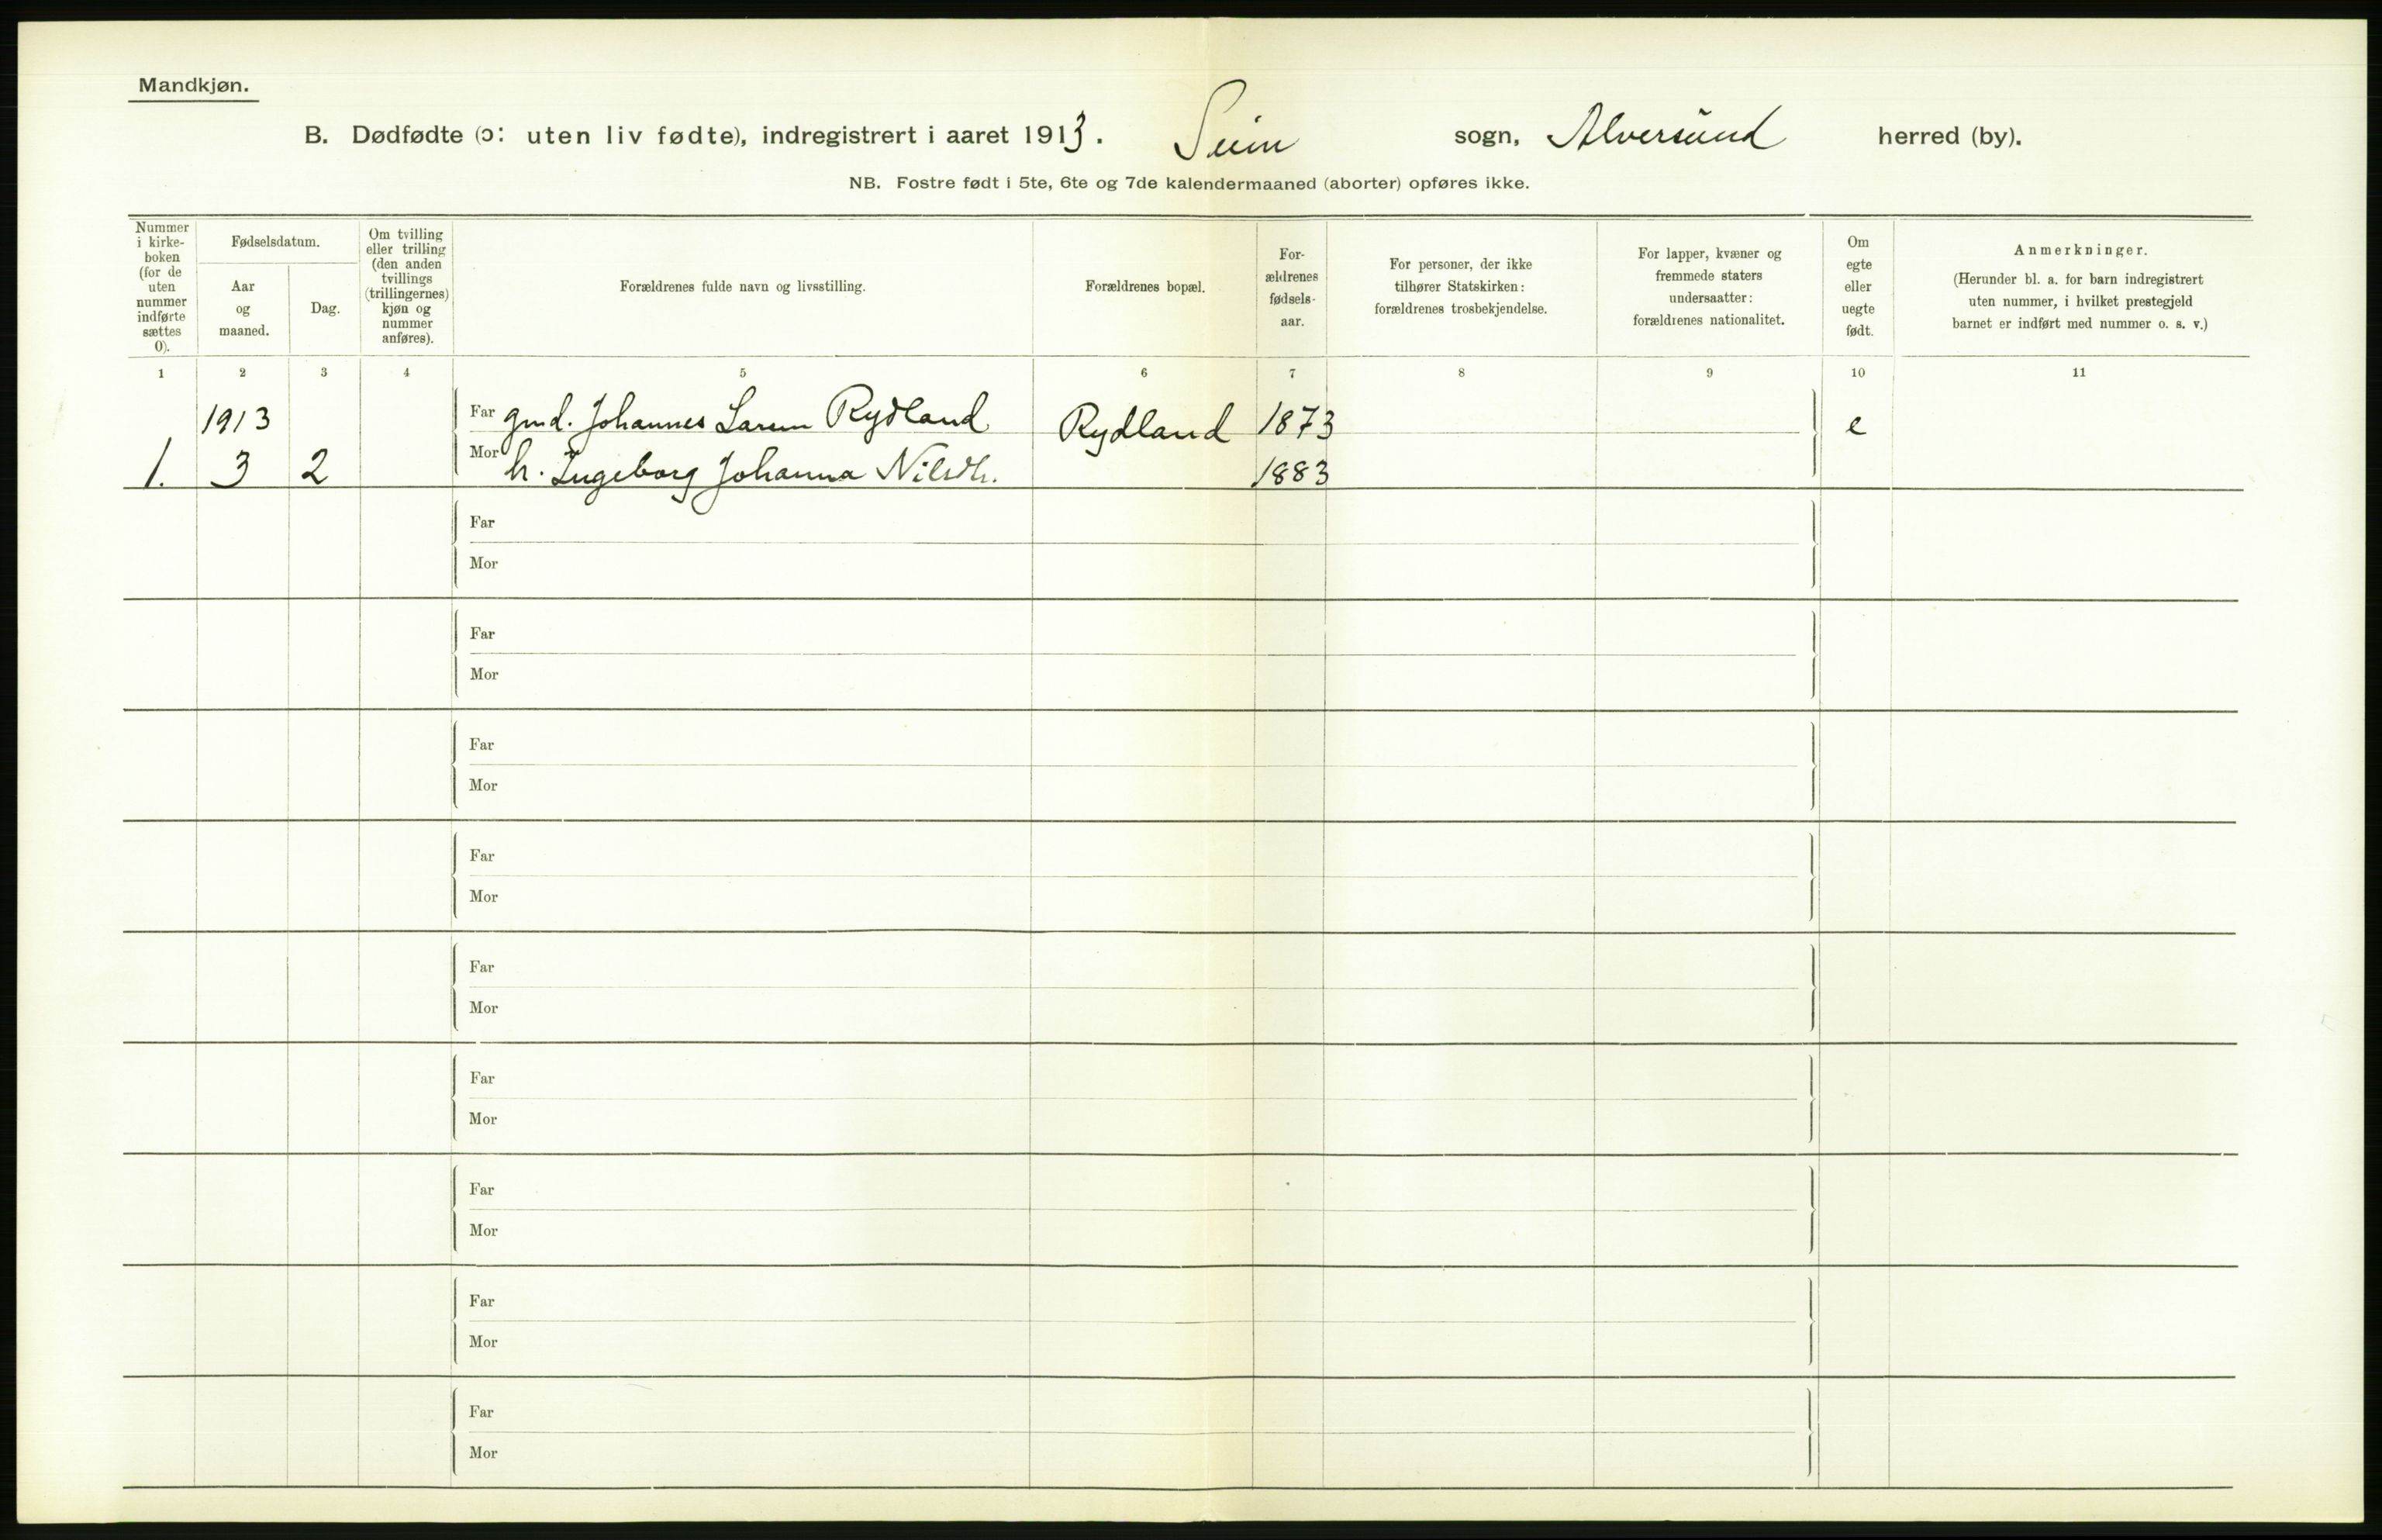 Mandkjøn.
B. Dødfødte (ɔ: uten liv fødte), indregistrert i aaret 1913. Seim sogn, Alversund herred (by).
NB. Fostre født i 5te, 6te og 7de kalendermaaned (aborter) opføres ikke.
Nummer
i kirke-
boken
(for de
uten
nummer
indførte
sættes
0).
Fødselsdatum.
Aar
og
maaned.
Dag.
Om tvilling
eller trilling
(den anden
tvillings
(trillingernes)
kjøn og
nummer
anføres).
Forældrenes fulde navn og livsstilling.
Forældrenes bopæl.
For-
ældrenes
fødsels-
aar.
For personer, der ikke
tilhører Statskirken:
forældrenes trosbekjendelse.
For lapper, kvæner og
fremmede staters
undersaatter:
forældrenes nationalitet.
Om
egte
eller
uegte
født.
Anmerkninger.
(Herunder bl. a. for barn indregistrert
uten nummer, i hvilket prestegjeld
barnet er indført med nummer o. s. v.)
1 2 3 4 5 6 7 8 9 10 11
1913 Far gmd. Johannes Larsen Rydland Rydland 1873 e
1. 3 2 Mor h. Ingeborg Johanna Nilsdt. 1883
Far
Mor
Far
Mor
Far
Mor
Far
Mor
Far
Mor
Far
Mor
Far
Mor
Far
Mor
Far
Mor